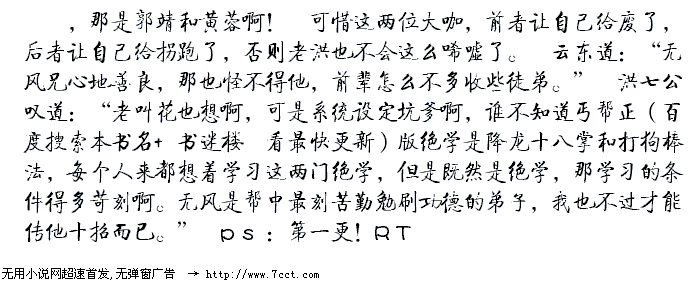 ，那是郭靖和黄蓉啊！　可惜这两位大咖，前者让自己给废了，
后者让自己给拐跑了，否则老洪也不会这么唏嘘了。　云东道：“无
风兄心地善良，那也怪不得他，前辈怎么不多收些徒弟。”　洪七公
叹道：“老叫花也想啊，可是系统设定坑爹啊，谁不知道丐帮正（百
度搜索本书名+ 书迷楼　看最快更新）版绝学是降龙十八掌和打狗棒
法，每个人来都想着学习这两门绝学，但是既然是绝学，那学习的条
件得多苛刻啊。无风是帮中最刻苦勤勉刷功德的弟子，我也不过才能
传他十招而已。”　ps：第一更！RT
无用小说网超速首发,无弹窗广告 → http://www.7cct.com